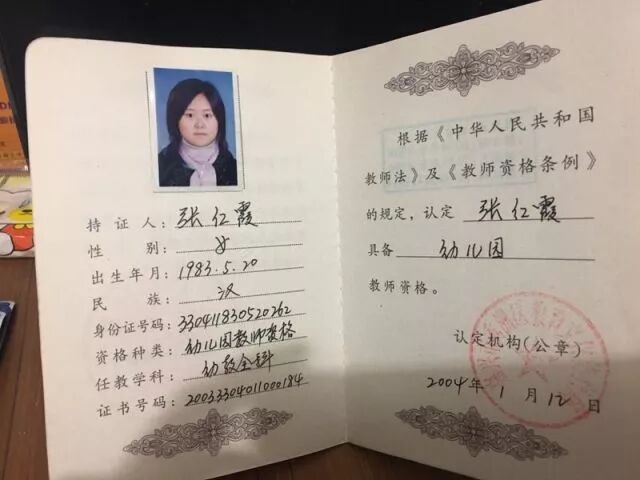 持证人：张红霞
性别：女
出生年月：1983.5.20
民族：汉
身份证号码：330411830520262
资格种类：幼儿园教师资格
任教学科：幼教全科
证书号码：20033304011000184
根据《中华人民共和国
教师法》及《教师资格条例》
的规定，认定 张红霞
具备 幼儿园
教师资格。
认定机构(公章)
2004年1月12日